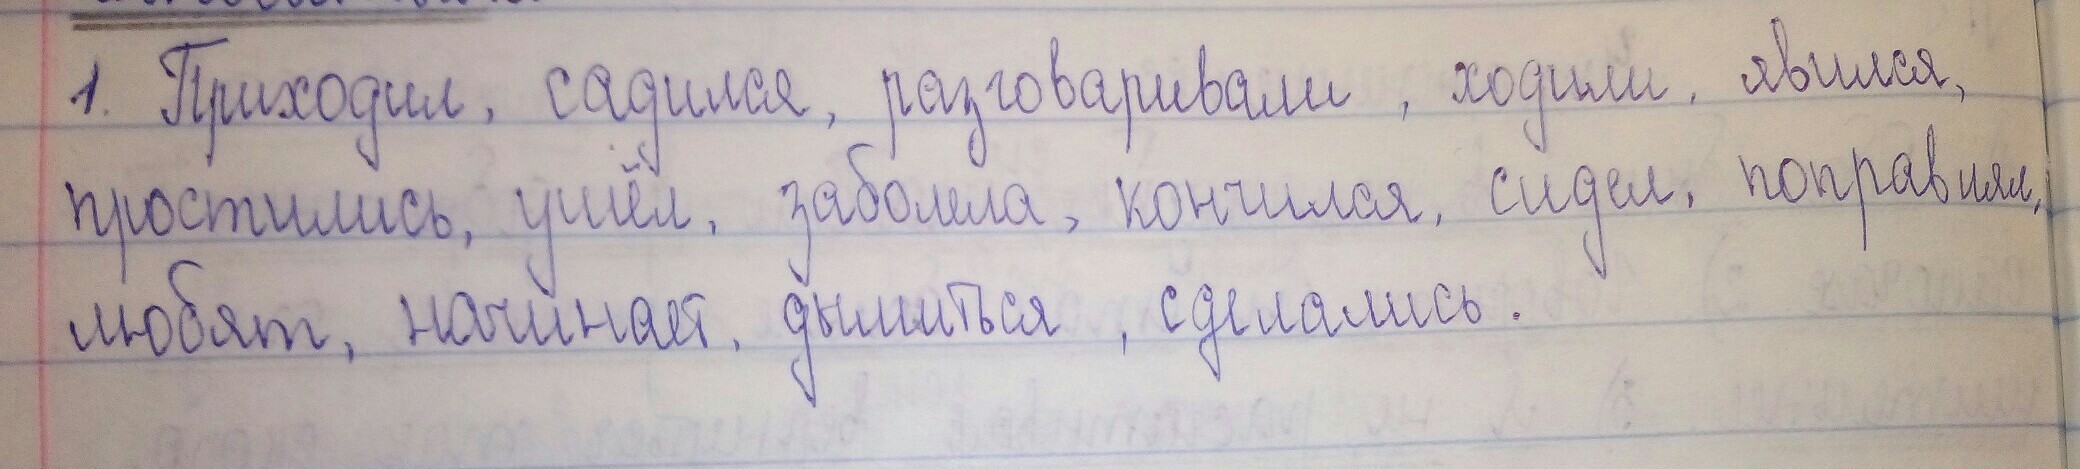 1. Приходил, садился, разговаривали, ходили, явился,
простились, ушёл, заболела, кончился, сидел, поправлял,
любят, начинает, дымиться, сделались.